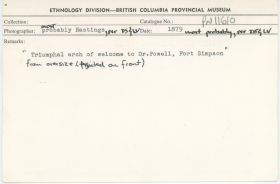 ETHNOLOGY DIVISION—BRITISH COLUMBIA PROVINCIAL MUSEUM
Collection: Catalogue No.: PN11610
most
Photographer: probably Hastings, per DS/LV Date: 1879 most probably, per DS/LV
Remarks:
"Triumphal arch of welcome to Dr.Powell, Fort Simpson"
from oversize (pencilled on front)